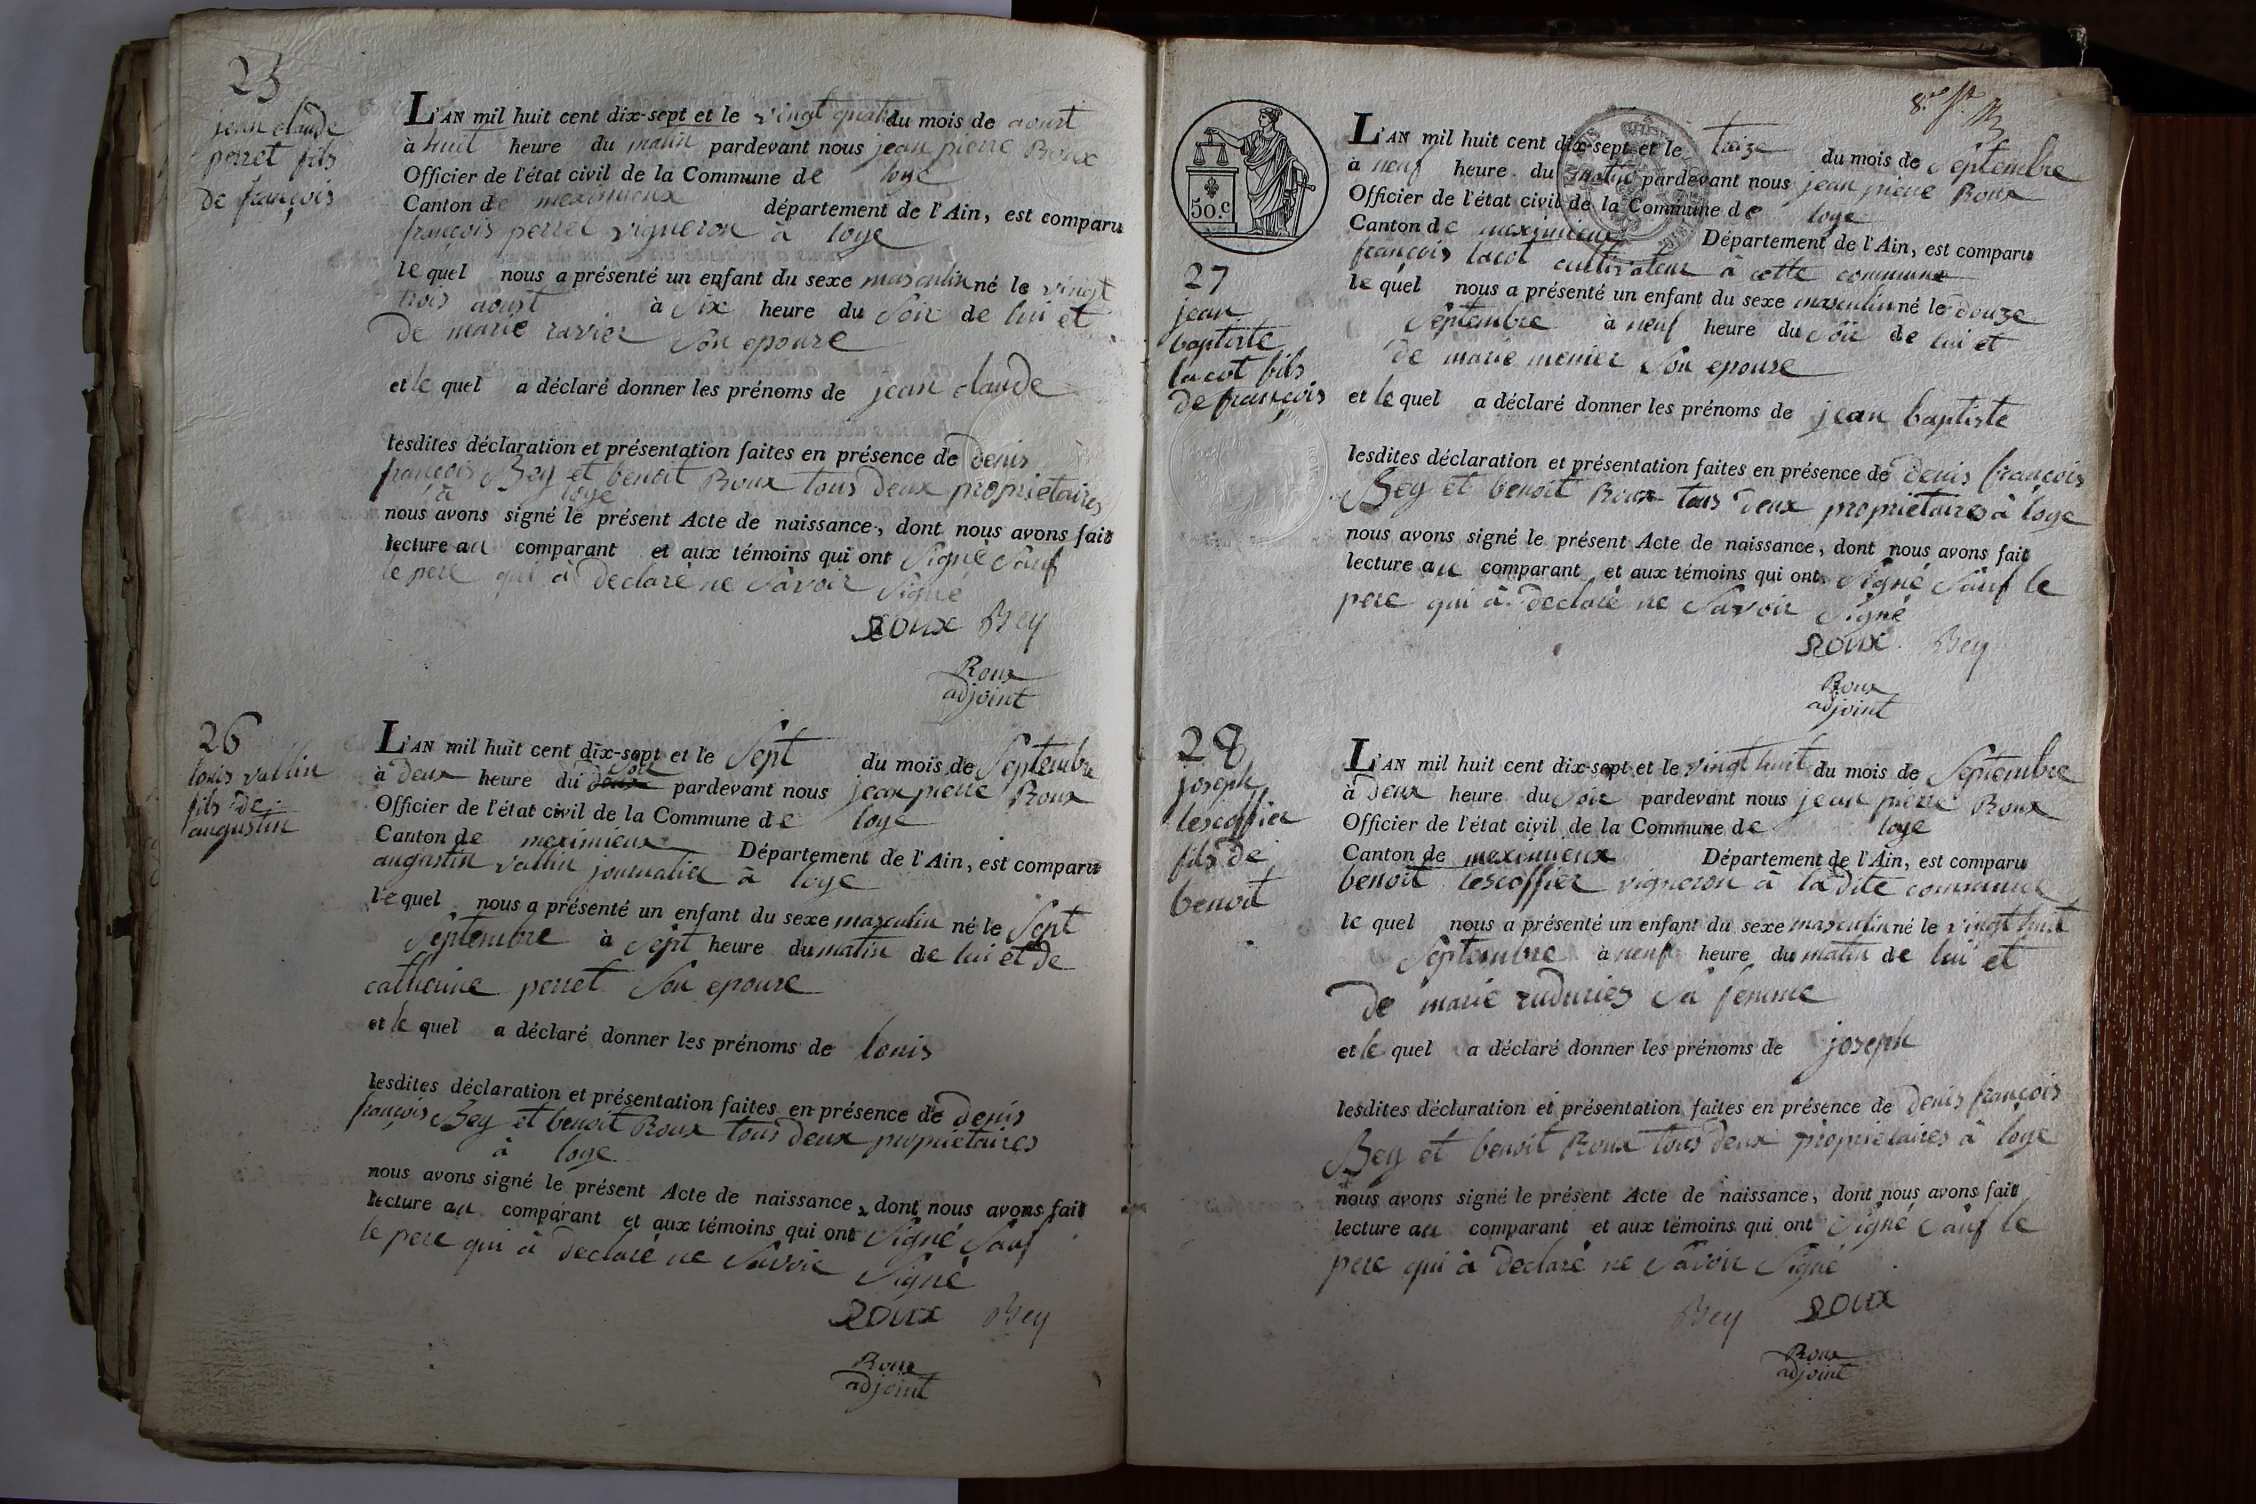 25
jean claude
perret fils
de françois
L'AN mil huit cent dix-sept et le vingt quatre du mois de aoust
à huit heure du matin pardevant nous jean pierre Roux
Officier de l'état civil de la Commune de loye
Canton de meximieux département de l'Ain, est comparu
françois perret vigneron à loye
lequel nous a présenté un enfant du sexe masculin né le vingt
trois aoust à six heure du soir de lui et
de marie ravier son epouze
et le quel a déclaré donner les prénoms de jean claude
lesdites déclaration et présentation faites en présence de denis
françois Bey et benoit Roux tous deux proprietaires
à loye
nous avons signé le présent Acte de naissance, dont nous avons fait
lecture au comparant et aux témoins qui ont signé sauf
le pere qui à declaré ne savoir signé
ROUX Bey
Roux
adjoint
26
louis vallin
fils de
augustin
L'AN mil huit cent dix-sept et le sept du mois de septembre
à deux heure du soir pardevant nous jean pierre Roux
Officier de l'état civil de la Commune de loye
Canton de meximieux Département de l'Ain, est comparu
augustin vallin journalier à loye
lequel nous a présenté un enfant du sexe masculin né le sept
septembre à sept heure du matin de lui et de
catherine perret son epouze
et le quel a déclaré donner les prénoms de louis
lesdites déclaration et présentation faites en présence de denis
françois Bey et benoit Roux tous deux proprietaires
à loye
nous avons signé le présent Acte de naissance, dont nous avons fait
lecture au comparant et aux témoins qui ont signé sauf
le pere qui à declaré ne savoir signé
ROUX Bey
Roux
adjoint
50.c
27
jean
baptiste
lacot fils
de françois
L'AN mil huit cent dix-sept et le treize du mois de septembre
à neuf heure du matin pardevant nous jean pierre Roux
Officier de l'état civil de la Commune de loye
Canton de meximieux Département de l'Ain, est comparu
françois lacot cultivateur à cette commune
le quel nous a présenté un enfant du sexe masculin né le douze
septembre à neuf heure du soir de lui et
de marie menier son epouse
et le quel a déclaré donner les prénoms de jean baptiste
lesdites déclaration et présentation faites en présence de denis françois
Bey et benoit Roux tous deux proprietaires à loye
nous avons signé le présent Acte de naissance, dont nous avons fait
lecture au comparant et aux témoins qui ont signé sauf le
pere qui à declaré ne savoir signé
ROUX Bey
Roux
adjoint
28
joseph
lescoffier
fils de
benoit
L'AN mil huit cent dix-sept et le vingt huit du mois de septembre
à deux heure du soir pardevant nous jean pierre Roux
Officier de l'état civil de la Commune de loye
Canton de meximieux Département de l'Ain, est comparu
benoit lescoffier vigneron à la dite commune
le quel nous a présenté un enfant du sexe masculin né le vingt huit
septembre à neuf heure du matin de lui et
de marie sa femme
et le quel a déclaré donner les prénoms de joseph
lesdites déclaration et présentation faites en présence de denis françois
Bey et benoit Roux tous deux proprietaires à loye
nous avons signé le présent Acte de naissance, dont nous avons fait
lecture au comparant et aux témoins qui ont signé sauf le
pere qui à declaré ne savoir signé
Bey ROUX
Roux
adjoint